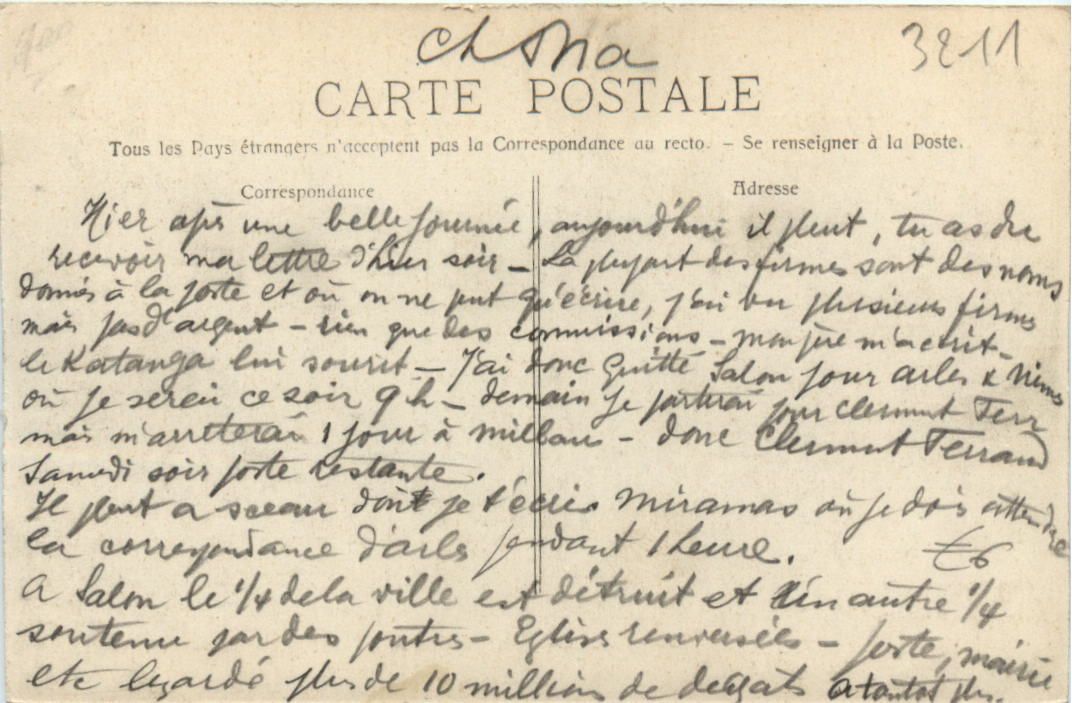 3211
CARTE POSTALE
Tous les Pays étrangers n'acceptent pas la Correspondance au recto. – Se renseigner à la Poste.
Correspondance
Adresse
Hier après une belle journée, aujourd'hui il pleut, tu as du
recevoir ma lettre d'hier soir – La plupart des firmes sont des noms
donnés à la poste et où on ne peut qu'écrire, j'ai vu plusieurs firmes
mais pas d'argent – rien que des commissions – mon père m'a écrit –
le Katanga lui sourit – J'ai donc quitté Salon pour arles & Nimes
où je serai ce soir 9 h – demain je partirai pour clermont Ferr
mais m'arreterai 1 jour à millau – donc Clermont Ferrand
Samedi soir poste restante.
Il pleut a sceau dont je t'écris Miramas où je dois attendre
la correspondance d'arles pendant 1 heure.
A Salon le 1/4 de la ville est détruit et un autre 1/4
soutenu par des poutres – Eglises renversées – poste, mairie
etc lezardé plus de 10 millions de dégats